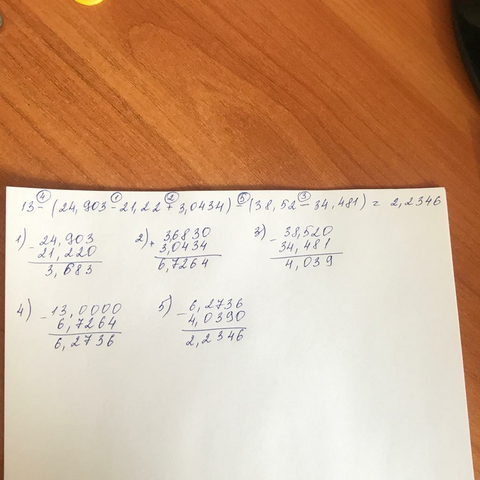 13 - (24,903 - 21,22 + 3,0434) - (38,52 - 34,481) = 2,2346
4 1 2 5 3
1) - 24,903
21,220
3,683
2) + 3,6830
3,0434
6,7264
3) - 38,520
34,481
4,039
4) - 13,0000
6,7264
6,2736
5) - 6,2736
4,0390
2,2346